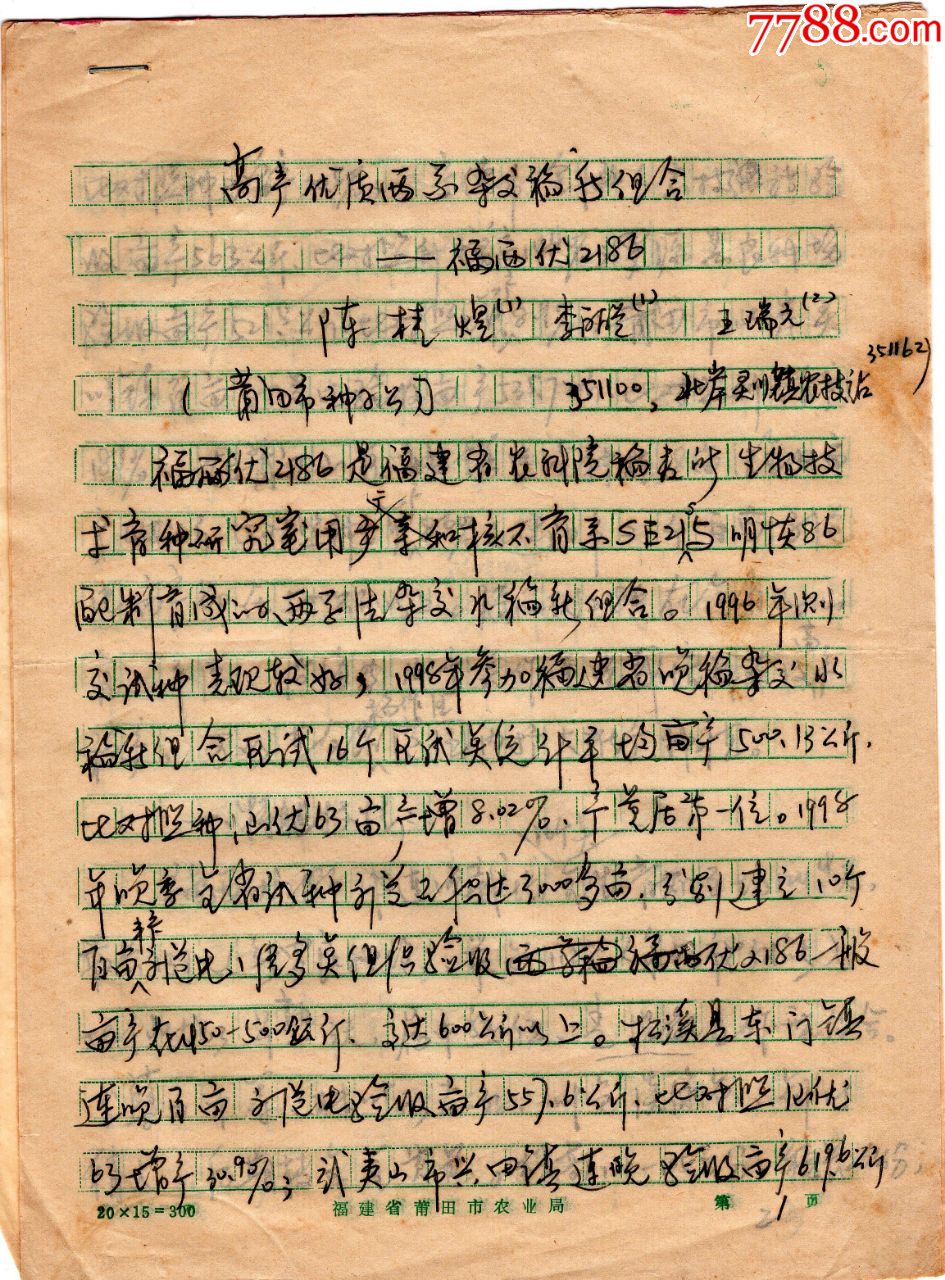 7788.com
高产优质两系杂交稻新组合
——福两优2186
陈桂煜(1) 李 (1) 王瑞元(2)
351162)
(莆田市种子公司 351100, 北岸灵川镇农技站
福两优2186是福建省农科院稻麦所生物技
术育种研究室用 核不育系SE21S 明恢86
配制育成的两系法杂交水稻新组合。1996年
交试种表现较好,1998年参加福建省晚稻杂交水
稻新组合区试16个区试点统计平均亩产500.13公斤,
比对照种汕优63亩产增8.02%、产量居第一位。1998
年晚季全省试种示范面积达5000多亩,分别建立10个
百亩示范片、经多点组织验收 优2186一般
亩产在450-500公斤、高达600公斤以上。松溪县东门镇
连晚百亩示范片验收亩产557.6公斤、比对照汕优
63增产30.9%;武夷山市兴田镇连晚验收亩产619.6公斤
20×15=300 福建省莆田市农业局 第 1 页